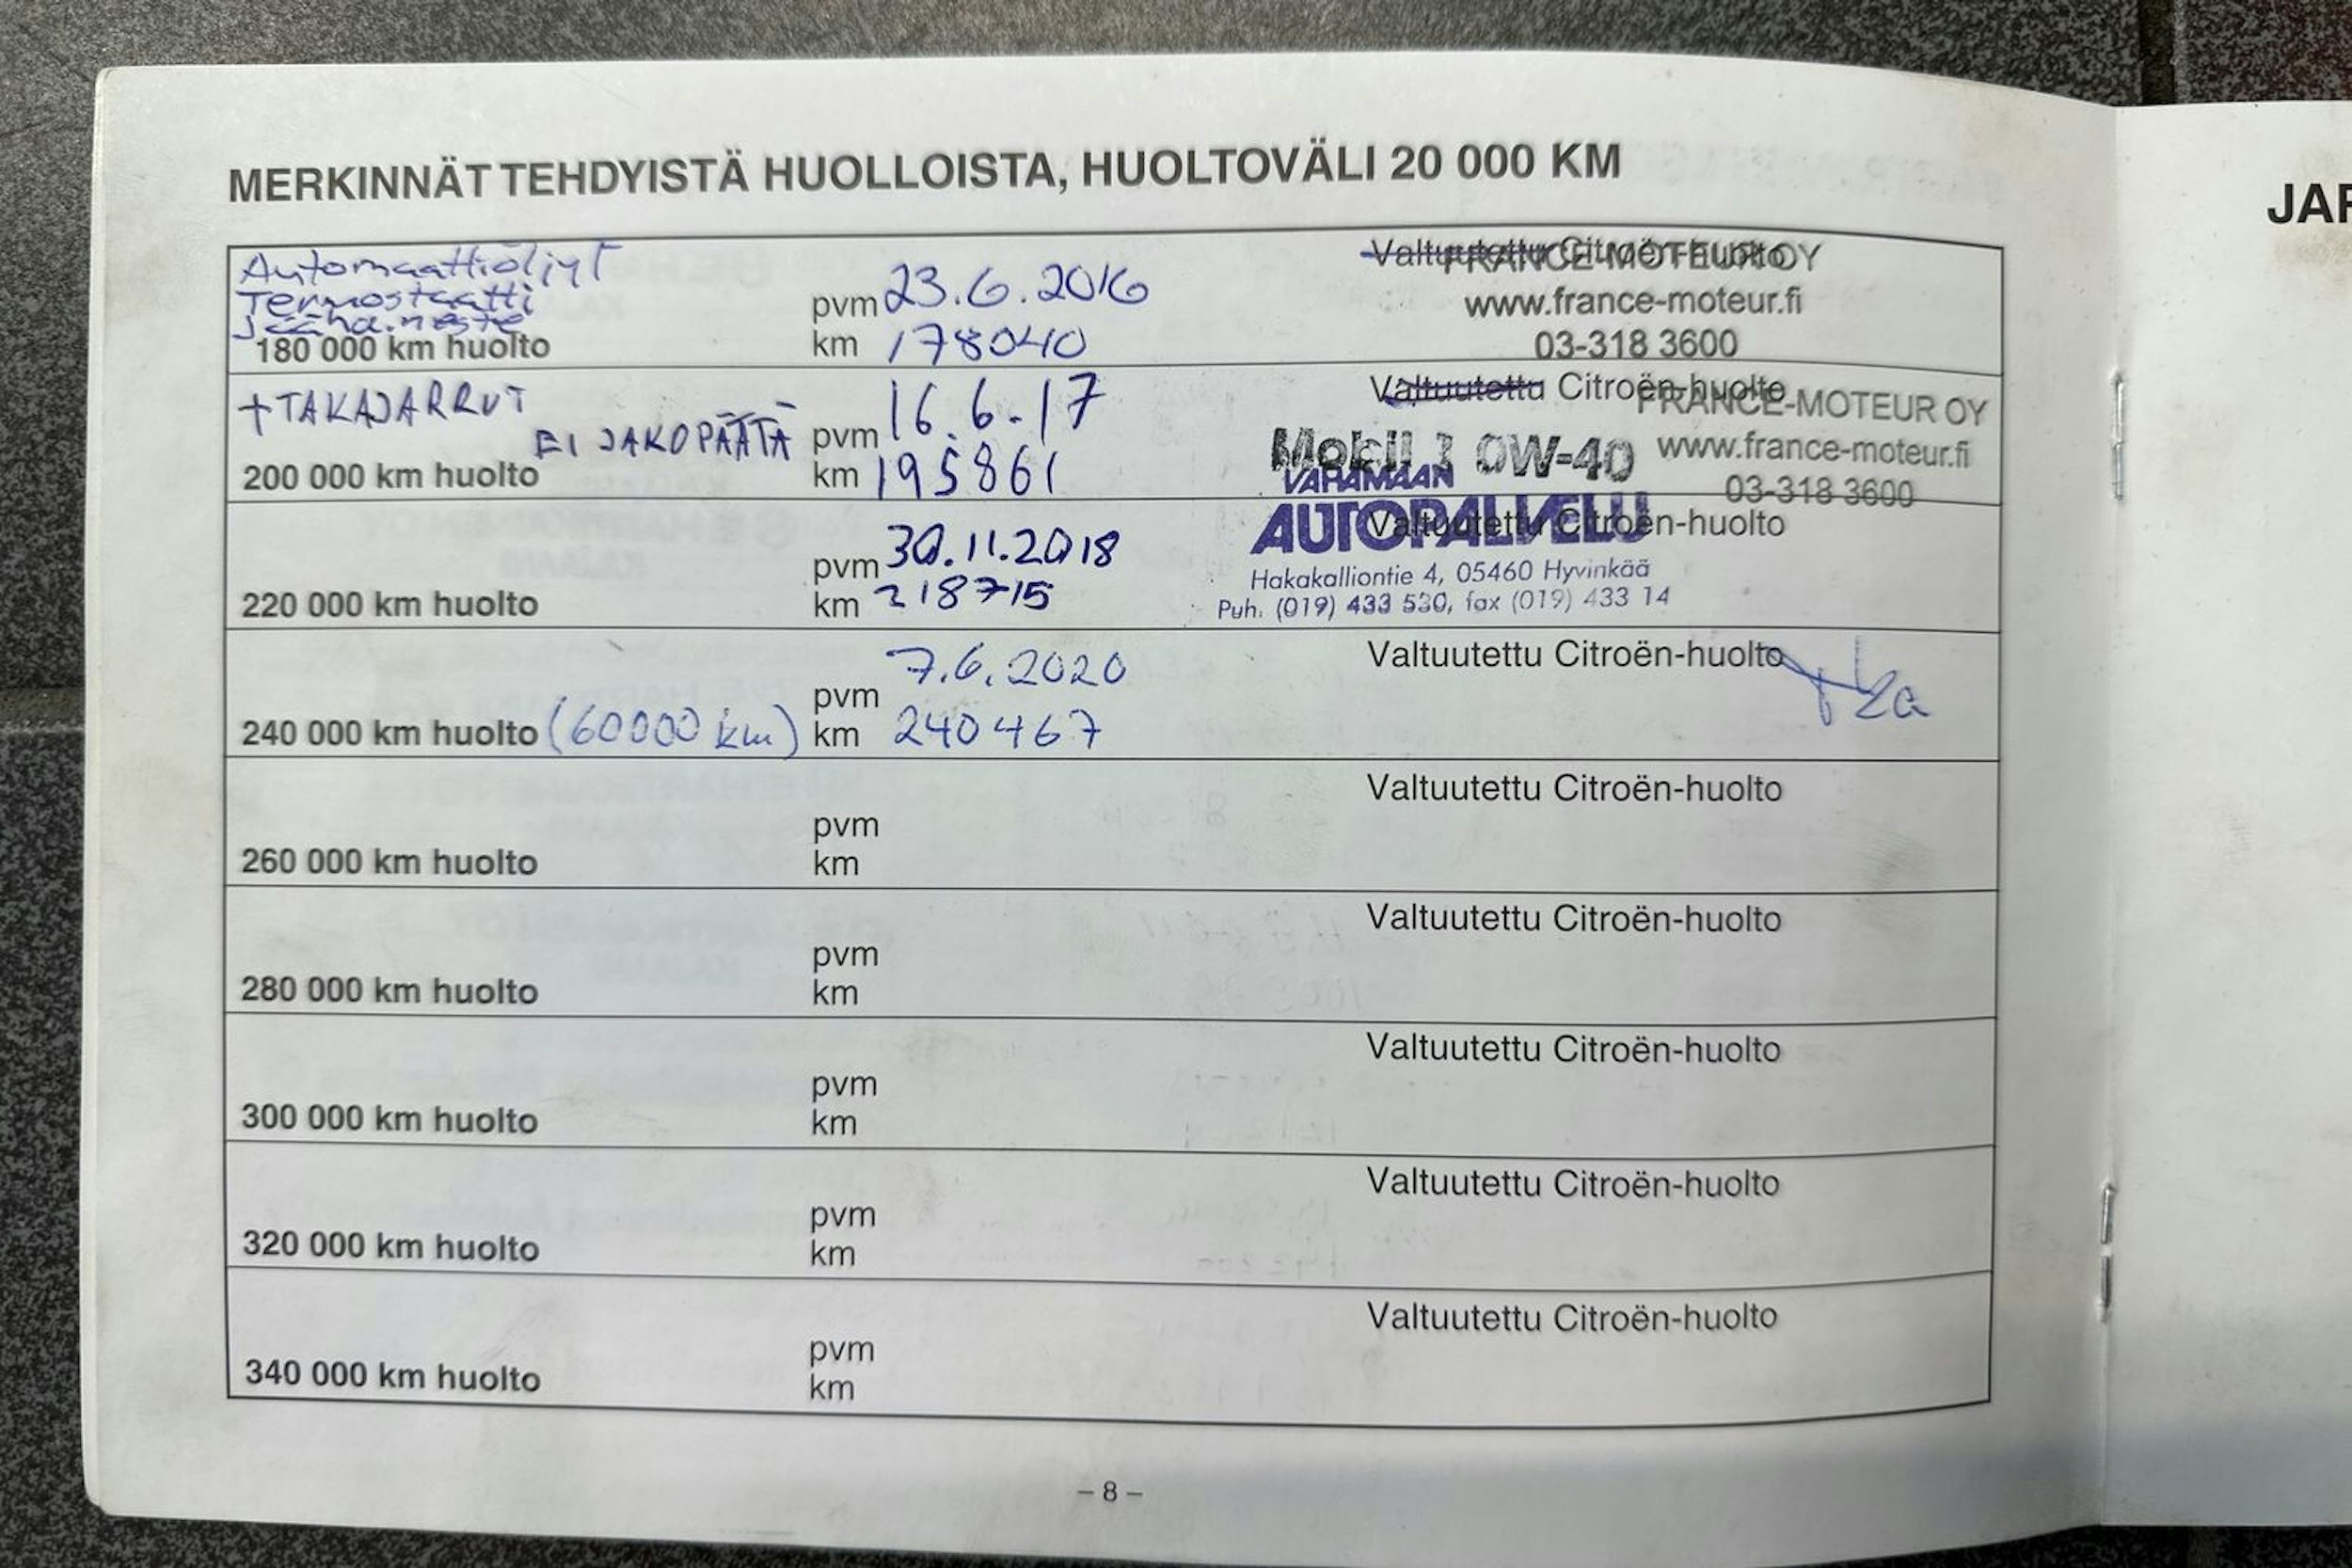 MERKINNÄT TEHDYISTÄ HUOLLOISTA, HUOLTOVÄLI 20 000 KM
JAR
Automaattiöljyt
Termostaatti
Jäähd.neste
180 000 km huolto
pvm 23.6.2016
km 178040
Valtuutettu Citroën-huolto
FRANCE-MOTEUR OY
www.france-moteur.fi
03-318 3600
+TAKAJARRUT
EI JAKOPÄÄTÄ
200 000 km huolto
pvm 16.6.17
km 195861
Valtuutettu Citroën-huolto
FRANCE-MOTEUR OY
www.france-moteur.fi
03-318 3600
Mobil 1 0W-40
220 000 km huolto
pvm 30.11.2018
km 218715
Valtuutettu Citroën-huolto
VAHAMAAN
AUTOPALVELU
Hakakalliontie 4, 05460 Hyvinkää
Puh. (019) 433 530, fax (019) 433 14
240 000 km huolto (60000 km)
pvm 7.6.2020
km 240467
Valtuutettu Citroën-huolto
260 000 km huolto
pvm
km
Valtuutettu Citroën-huolto
280 000 km huolto
pvm
km
Valtuutettu Citroën-huolto
300 000 km huolto
pvm
km
Valtuutettu Citroën-huolto
320 000 km huolto
pvm
km
Valtuutettu Citroën-huolto
340 000 km huolto
pvm
km
Valtuutettu Citroën-huolto
– 8 –